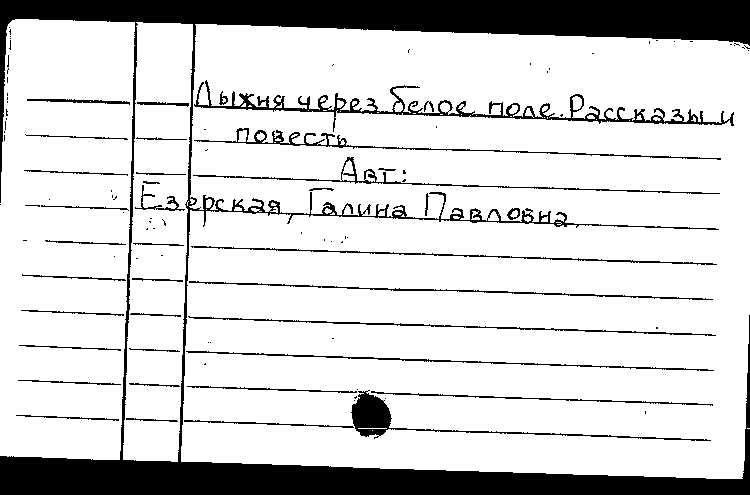 Лыжня через белое поле. Рассказы и
повесть
Авт:
Езерская, Галина Павловна.